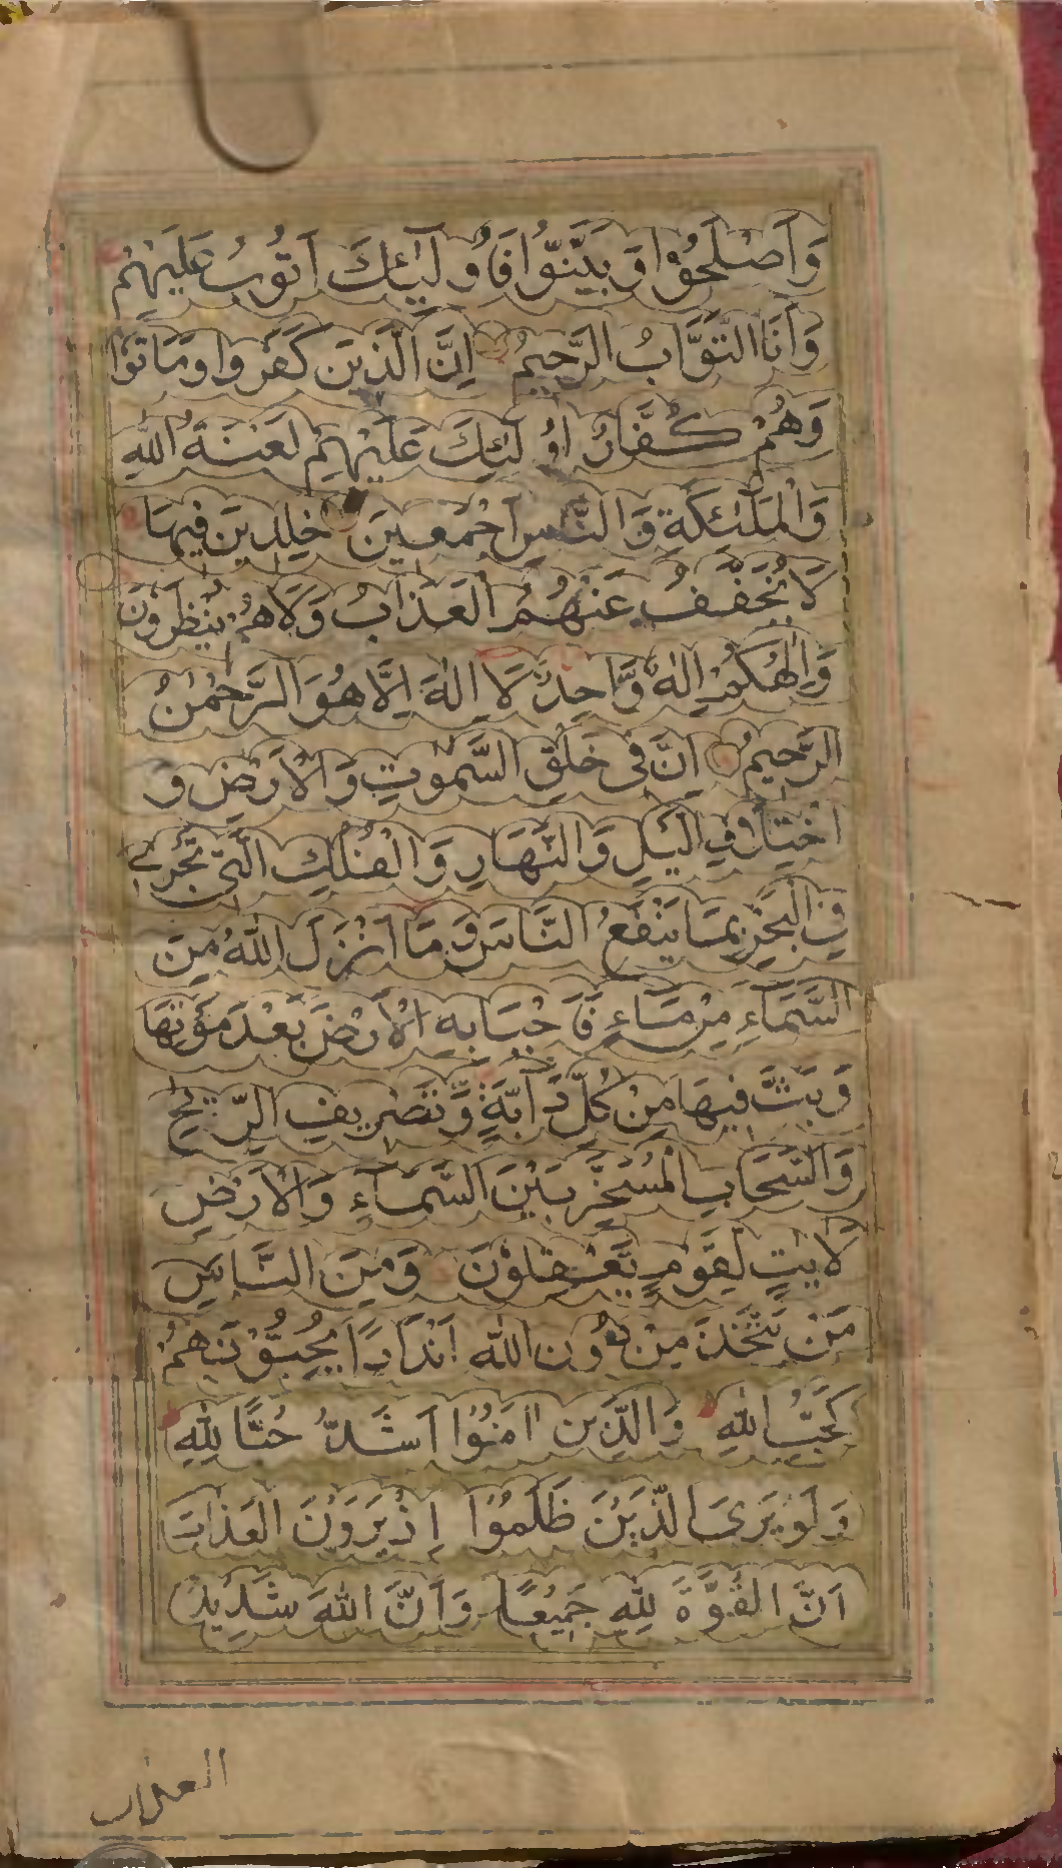 وَاَصْلَحُوْا وَبَيَّنُوْا فَاُولٰٓئِكَ اَتُوْبُ عَلَيْهِمْ
وَاَنَا التَّوَّابُ الرَّحِيْمُ اِنَّ الَّذِيْنَ كَفَرُوا وَمَاتُوْا
وَهُمْ كُفَّارٌ اُولٰٓئِكَ عَلَيْهِمْ لَعْنَةُ اللّٰهِ
وَالْمَلٰٓئِكَةِ وَالنَّاسِ اَجْمَعِيْنَ خٰلِدِيْنَ فِيْهَا
لَا يُخَفَّفُ عَنْهُمُ الْعَذَابُ وَلَا هُمْ يُنْظَرُوْنَ
وَاِلٰهُكُمْ اِلٰهٌ وَّاحِدٌ لَا اِلٰهَ اِلَّا هُوَ الرَّحْمٰنُ
الرَّحِيْمُ اِنَّ فِيْ خَلْقِ السَّمٰوٰتِ وَالْاَرْضِ و
اخْتِلَافِ الَّيْلِ وَالنَّهَارِ وَالْفُلْكِ الَّتِيْ تَجْرِيْ
فِي الْبَحْرِ بِمَا يَنْفَعُ النَّاسَ وَمَا اَنْزَلَ اللّٰهُ مِنَ
السَّمَآءِ مِنْ مَّآءٍ فَاَحْيَا بِهِ الْاَرْضَ بَعْدَ مَوْتِهَا
وَبَثَّ فِيْهَا مِنْ كُلِّ دَآبَّةٍ وَّتَصْرِيْفِ الرِّيٰحِ
وَالسَّحَابِ الْمُسَخَّرِ بَيْنَ السَّمَآءِ وَالْاَرْضِ
لَاٰيٰتٍ لِّقَوْمٍ يَّعْقِلُوْنَ وَمِنَ النَّاسِ
مَنْ يَّتَّخِذُ مِنْ دُوْنِ اللّٰهِ اَنْدَادًا يُّحِبُّوْنَهُمْ
كَحُبِّ اللّٰهِ وَالَّذِيْنَ اٰمَنُوْا اَشَدُّ حُبًّا لِلّٰهِ
وَلَوْ يَرَى الَّذِيْنَ ظَلَمُوْا اِذْ يَرَوْنَ الْعَذَابَ
اَنَّ الْقُوَّةَ لِلّٰهِ جَمِيْعًا وَاَنَّ اللّٰهَ شَدِيْدُ
العذاب